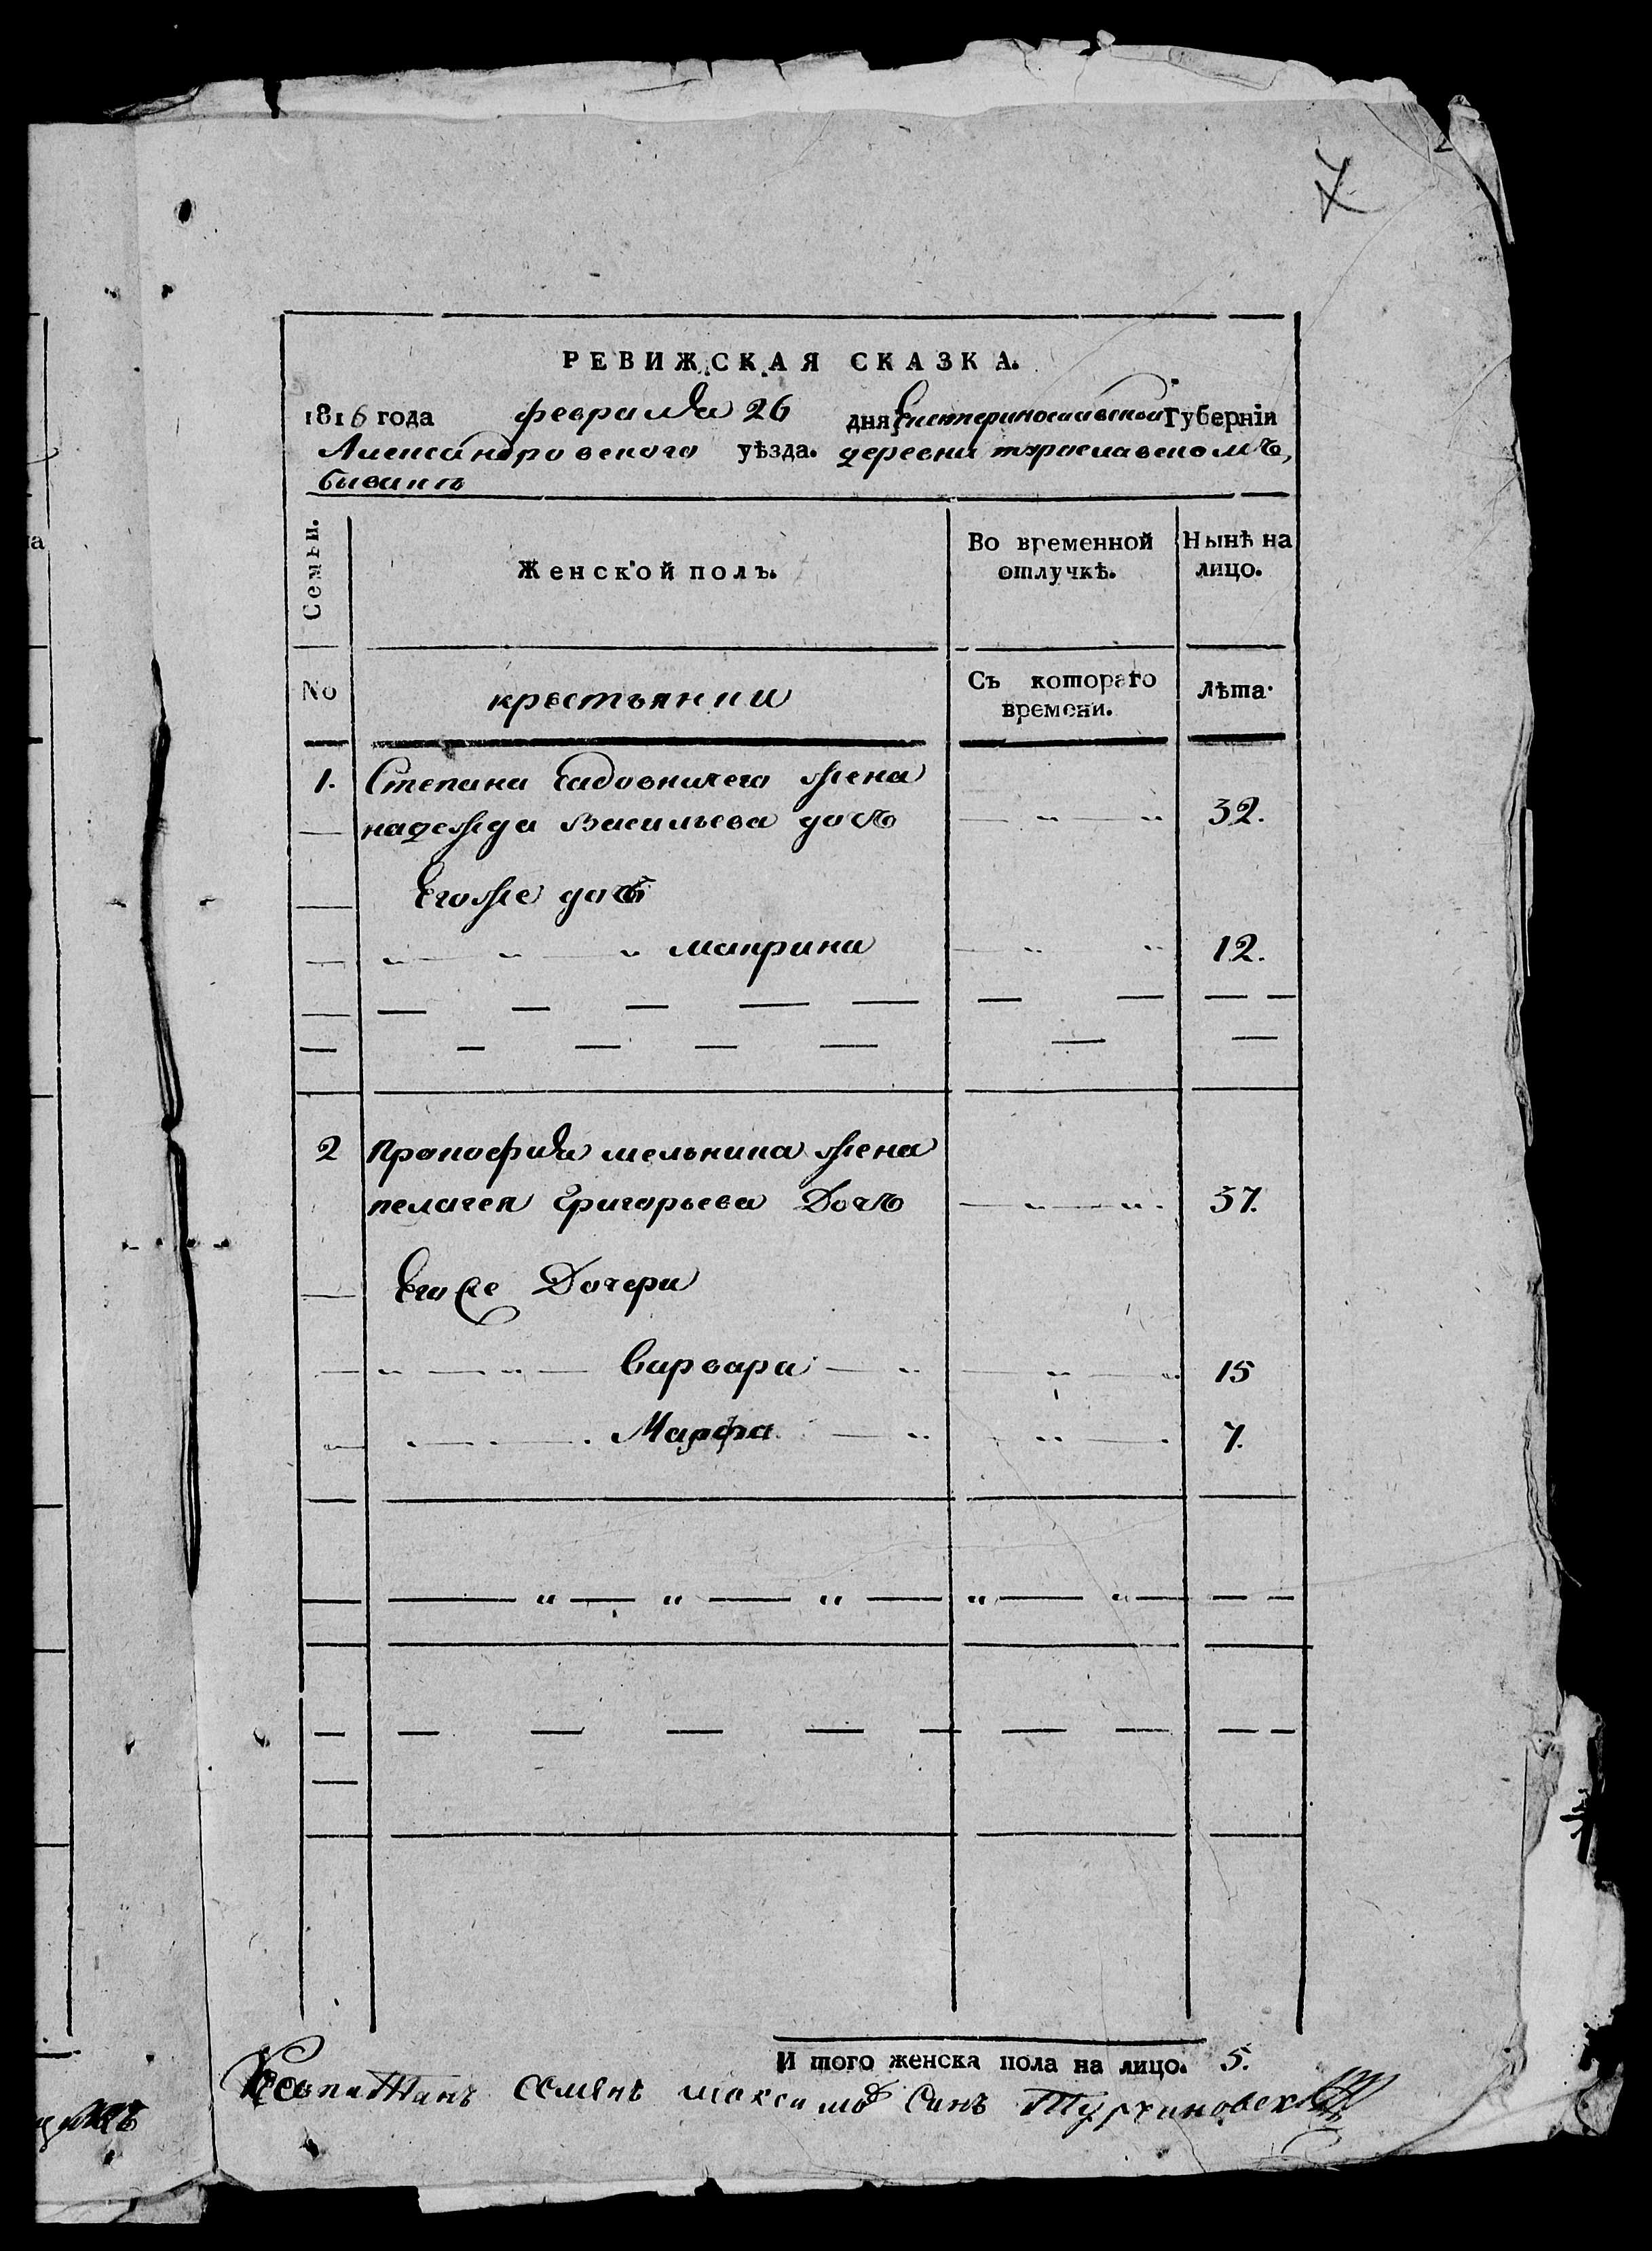 7
РЕВИЖСКАЯ СКАЗКА.
1816 года февраля 26 дня Екатеринославской Губерніи
Александровского уѣзда. деревни
Семьи. Женской полъ. Во временной отлучкѣ. Нынѣ на лицо.
No крестьянки Съ котораго времени. лѣта.
1. Степана Садовничего жена
надежда Васильева дочь 32.
Егоже дочь
макрина 12.
2 Прокофия мельника жена
пелагея Григорьева Дочь 37.
Егоже Дочери
варвара 15
Марфа 7.
И того женска пола на лицо. 5.
Капитанъ семенъ максимовъ Синъ